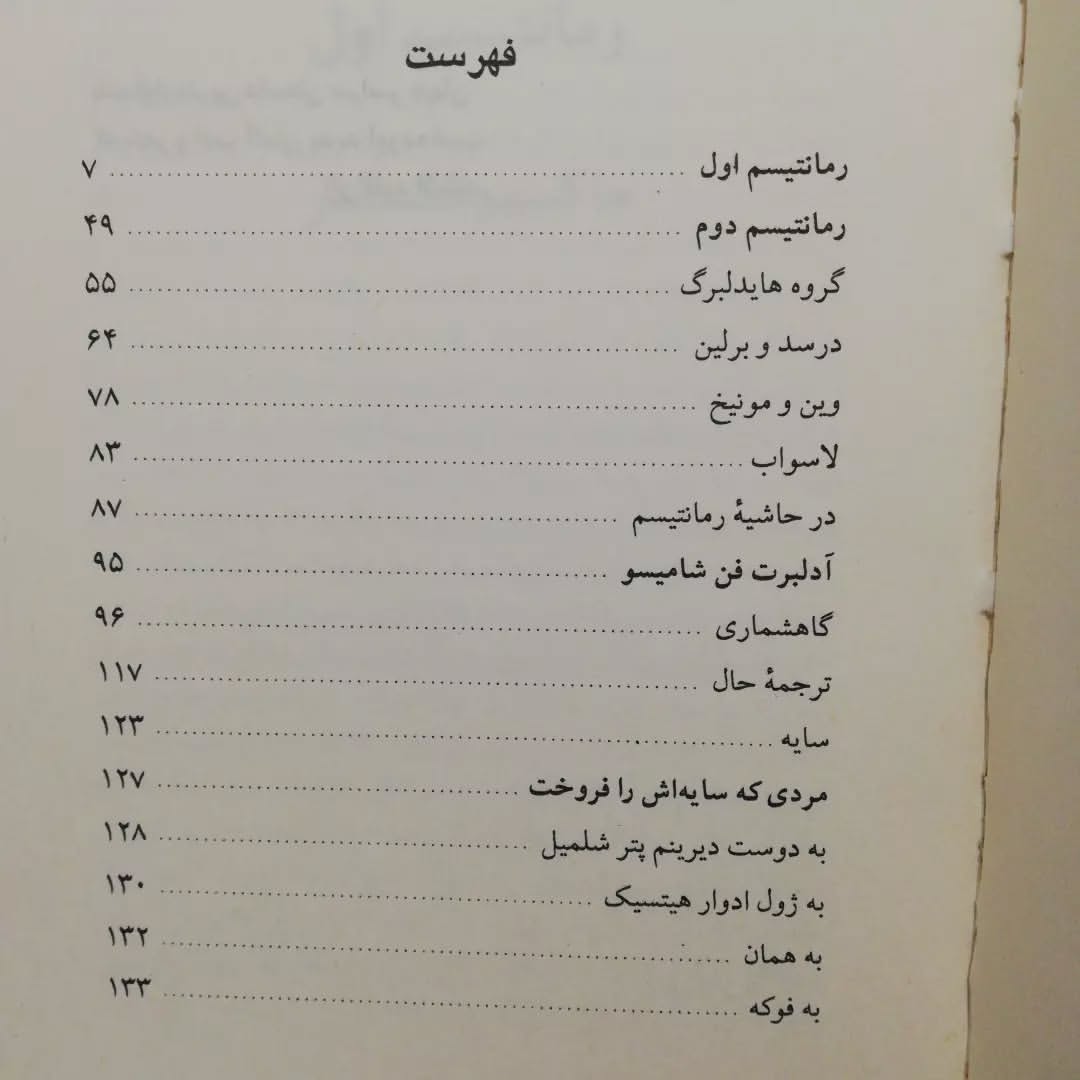 فهرست
رمانتیسم اول ........ ۷
رمانتیسم دوم ........ ۴۹
گروه هایدلبرگ ........ ۵۵
درسد و برلین ........ ۶۴
وین و مونیخ ........ ۷۸
لاسواب ........ ۸۳
در حاشیهٔ رمانتیسم ........ ۸۷
آدلبرت فن شامیسو ........ ۹۵
گاهشماری ........ ۹۶
ترجمهٔ حال ........ ۱۱۷
سایه ........ ۱۲۳
مردی که سایه‌اش را فروخت ........ ۱۲۷
به دوست دیرینم پتر شلمیل ........ ۱۲۸
به ژول ادوار هیتسیک ........ ۱۳۰
به همان ........ ۱۳۲
به فوکه ........ ۱۳۳